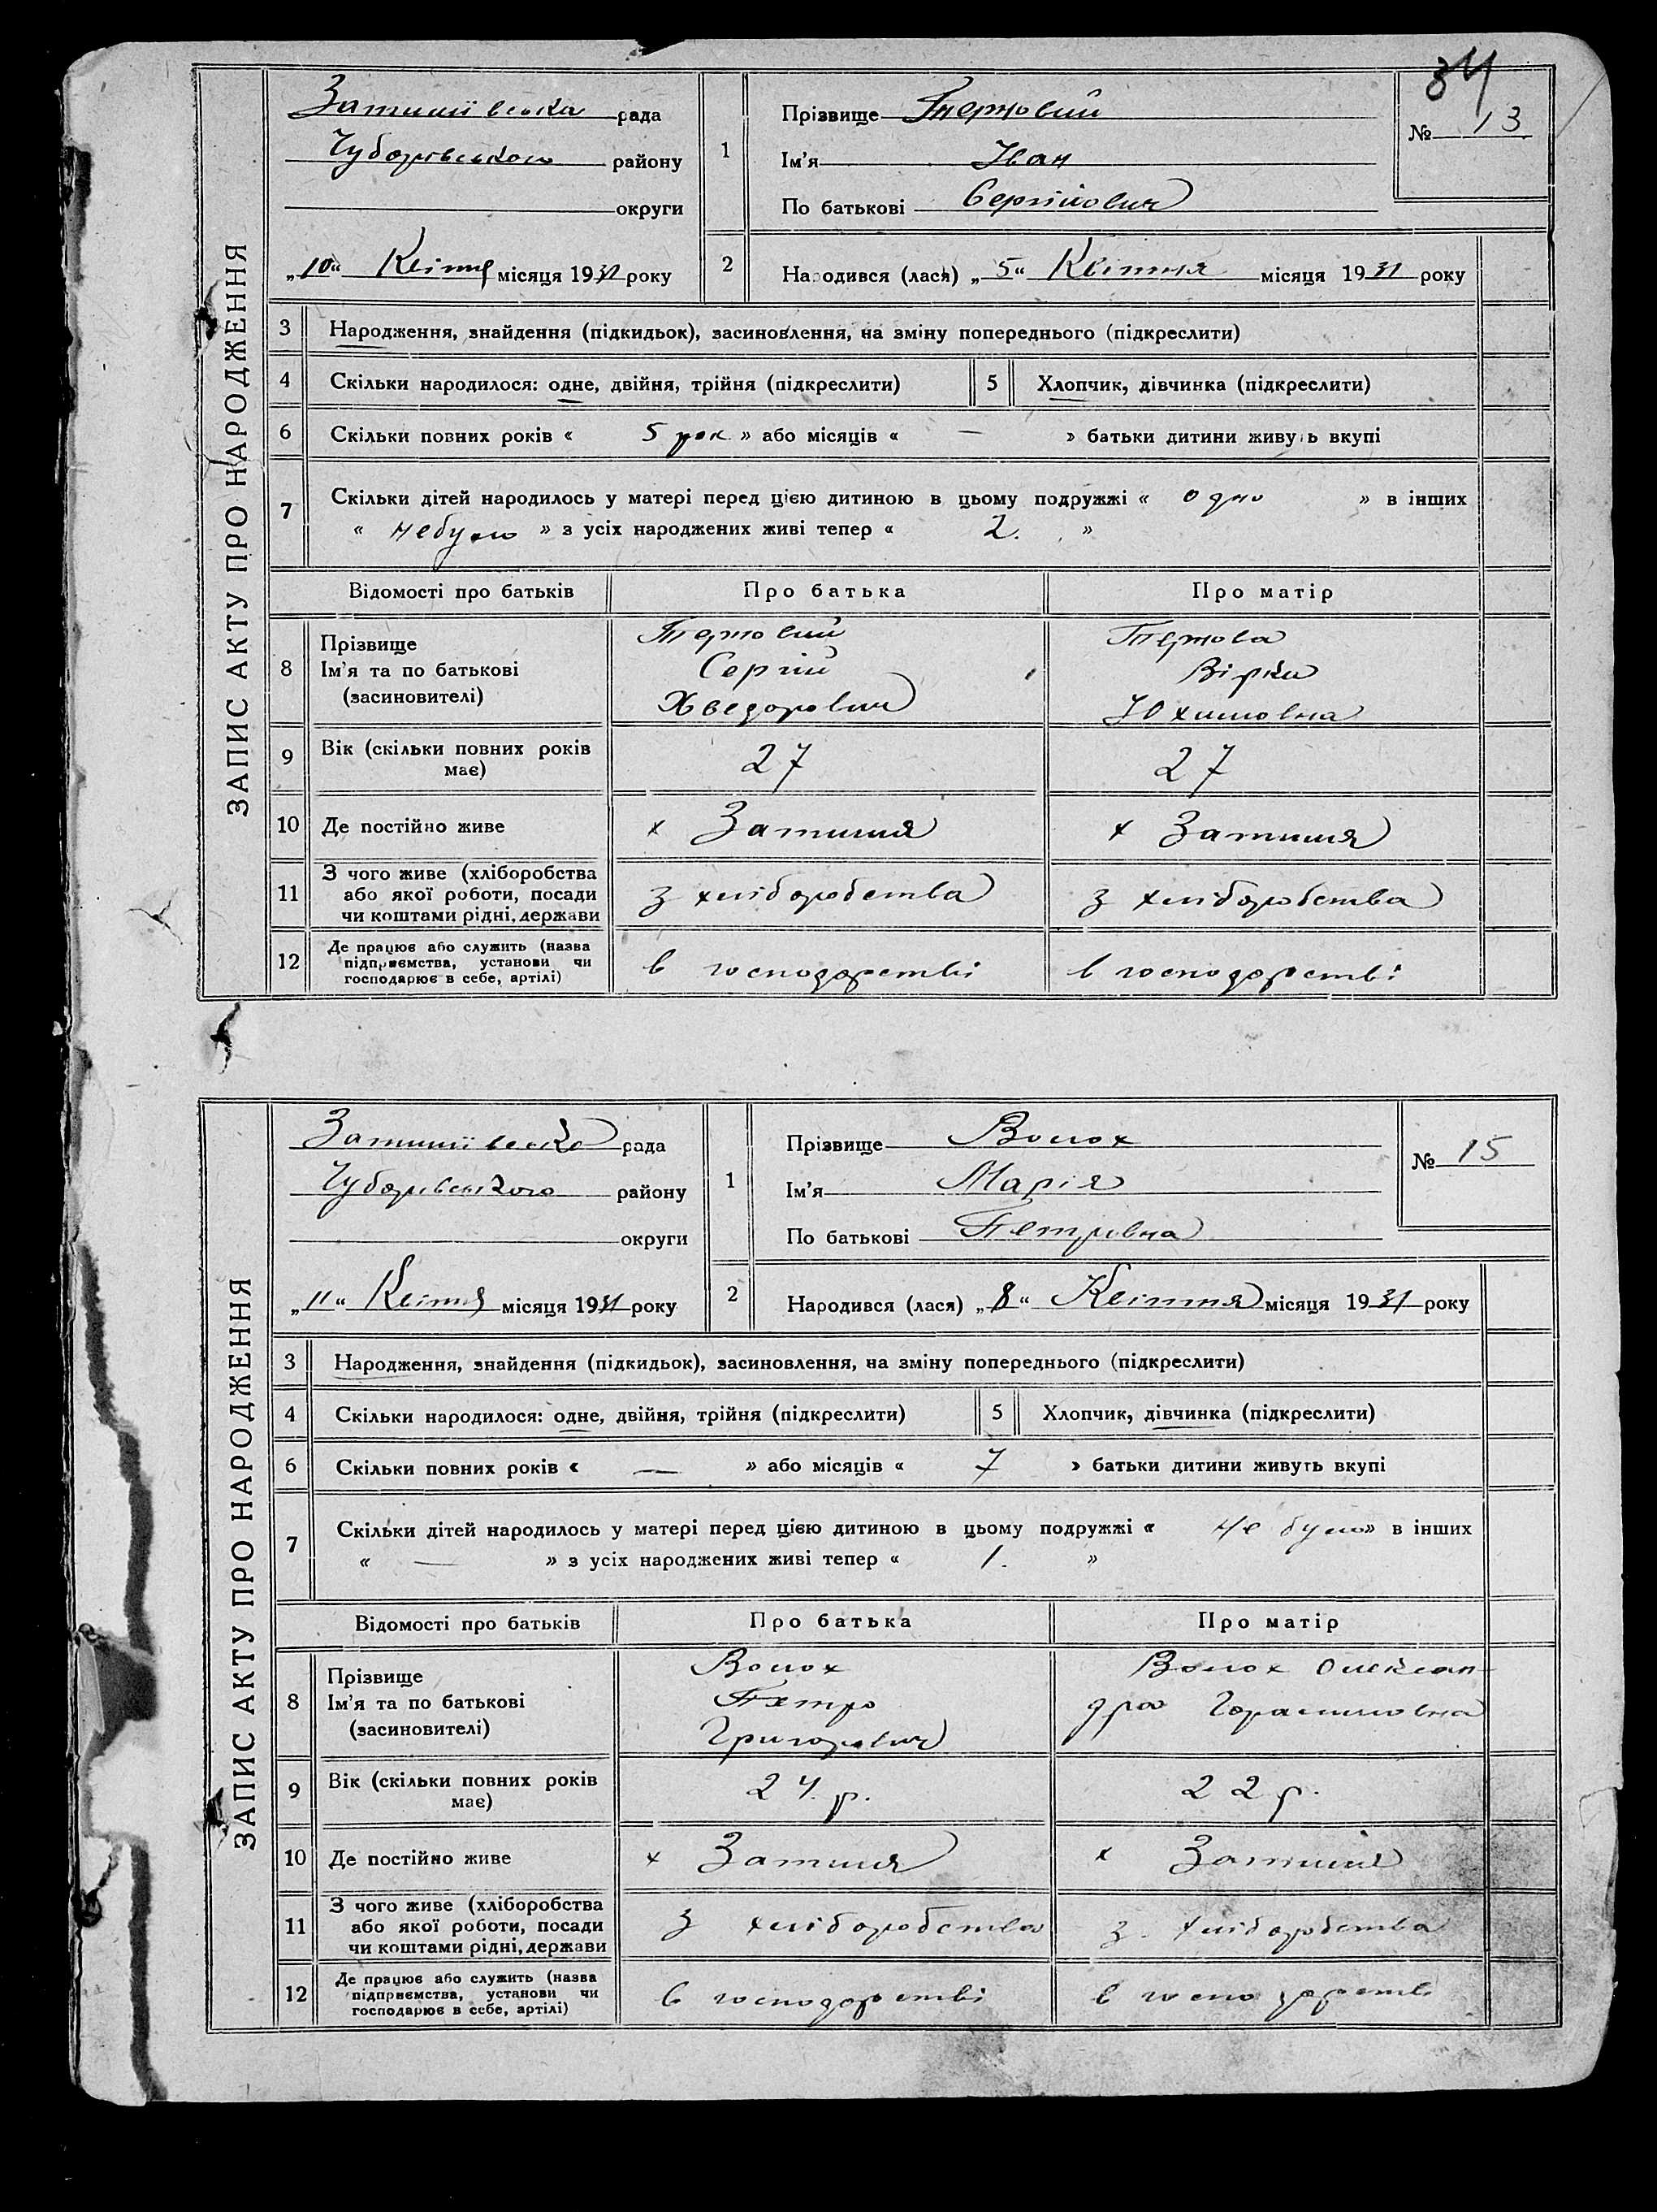 34
Затишівська рада
Чубарівського району
округи
„10“ Квітня місяця 1931 року
1
Прізвище Терновий
Ім'я Іван
По батькові Сергійович
№ 13
2
Народився (лася) „5“ Квітня місяця 1931 року
ЗАПИС АКТУ ПРО НАРОДЖЕННЯ
3 Народження, знайдення (підкидьок), засиновлення, на зміну попереднього (підкреслити)
4 Скільки народилося: одне, двійня, трійня (підкреслити) 5 Хлопчик, дівчинка (підкреслити)
6 Скільки повних років « 5 рок » або місяців « — » батьки дитини живуть вкупі
7 Скільки дітей народилось у матері перед цією дитиною в цьому подружжі « одно » в інших
« небуло » з усіх народжених живі тепер « 2. »
Відомості про батьків Про батька Про матір
8 Прізвище Терновий Тернова
Ім'я та по батькові Сергій Вірка
(засиновителі) Хведорович Юхимовна
9 Вік (скільки повних років має) 27 27
10 Де постійно живе х Затишшя х Затишшя
11 З чого живе (хліборобства
або якої роботи, посади з хліборобства з хліборобства
чи коштами рідні, держави
12 Де працює або служить (назва
підприємства, установи чи в господарстві в господарстві
господарює в себе, артілі)
Затишівська рада
Чубарівського району
округи
„11“ Квітня місяця 1931 року
1
Прізвище Волох
Ім'я Марія
По батькові Петровна
№ 15
2
Народився (лася) „8“ Квітня місяця 1931 року
ЗАПИС АКТУ ПРО НАРОДЖЕННЯ
3 Народження, знайдення (підкидьок), засиновлення, на зміну попереднього (підкреслити)
4 Скільки народилося: одне, двійня, трійня (підкреслити) 5 Хлопчик, дівчинка (підкреслити)
6 Скільки повних років « — » або місяців « 7 » батьки дитини живуть вкупі
7 Скільки дітей народилось у матері перед цією дитиною в цьому подружжі « не було » в інших
« — » з усіх народжених живі тепер « 1. »
Відомості про батьків Про батька Про матір
8 Прізвище Волох Волох Олексан-
Ім'я та по батькові Петро дра Горасимовна
(засиновителі) Григорович
9 Вік (скільки повних років має) 24 р. 22 р.
10 Де постійно живе х Затишшя х Затишшя
11 З чого живе (хліборобства
або якої роботи, посади з хліборобства з хліборобства
чи коштами рідні, держави
12 Де працює або служить (назва
підприємства, установи чи в господарстві в господарстві
господарює в себе, артілі)